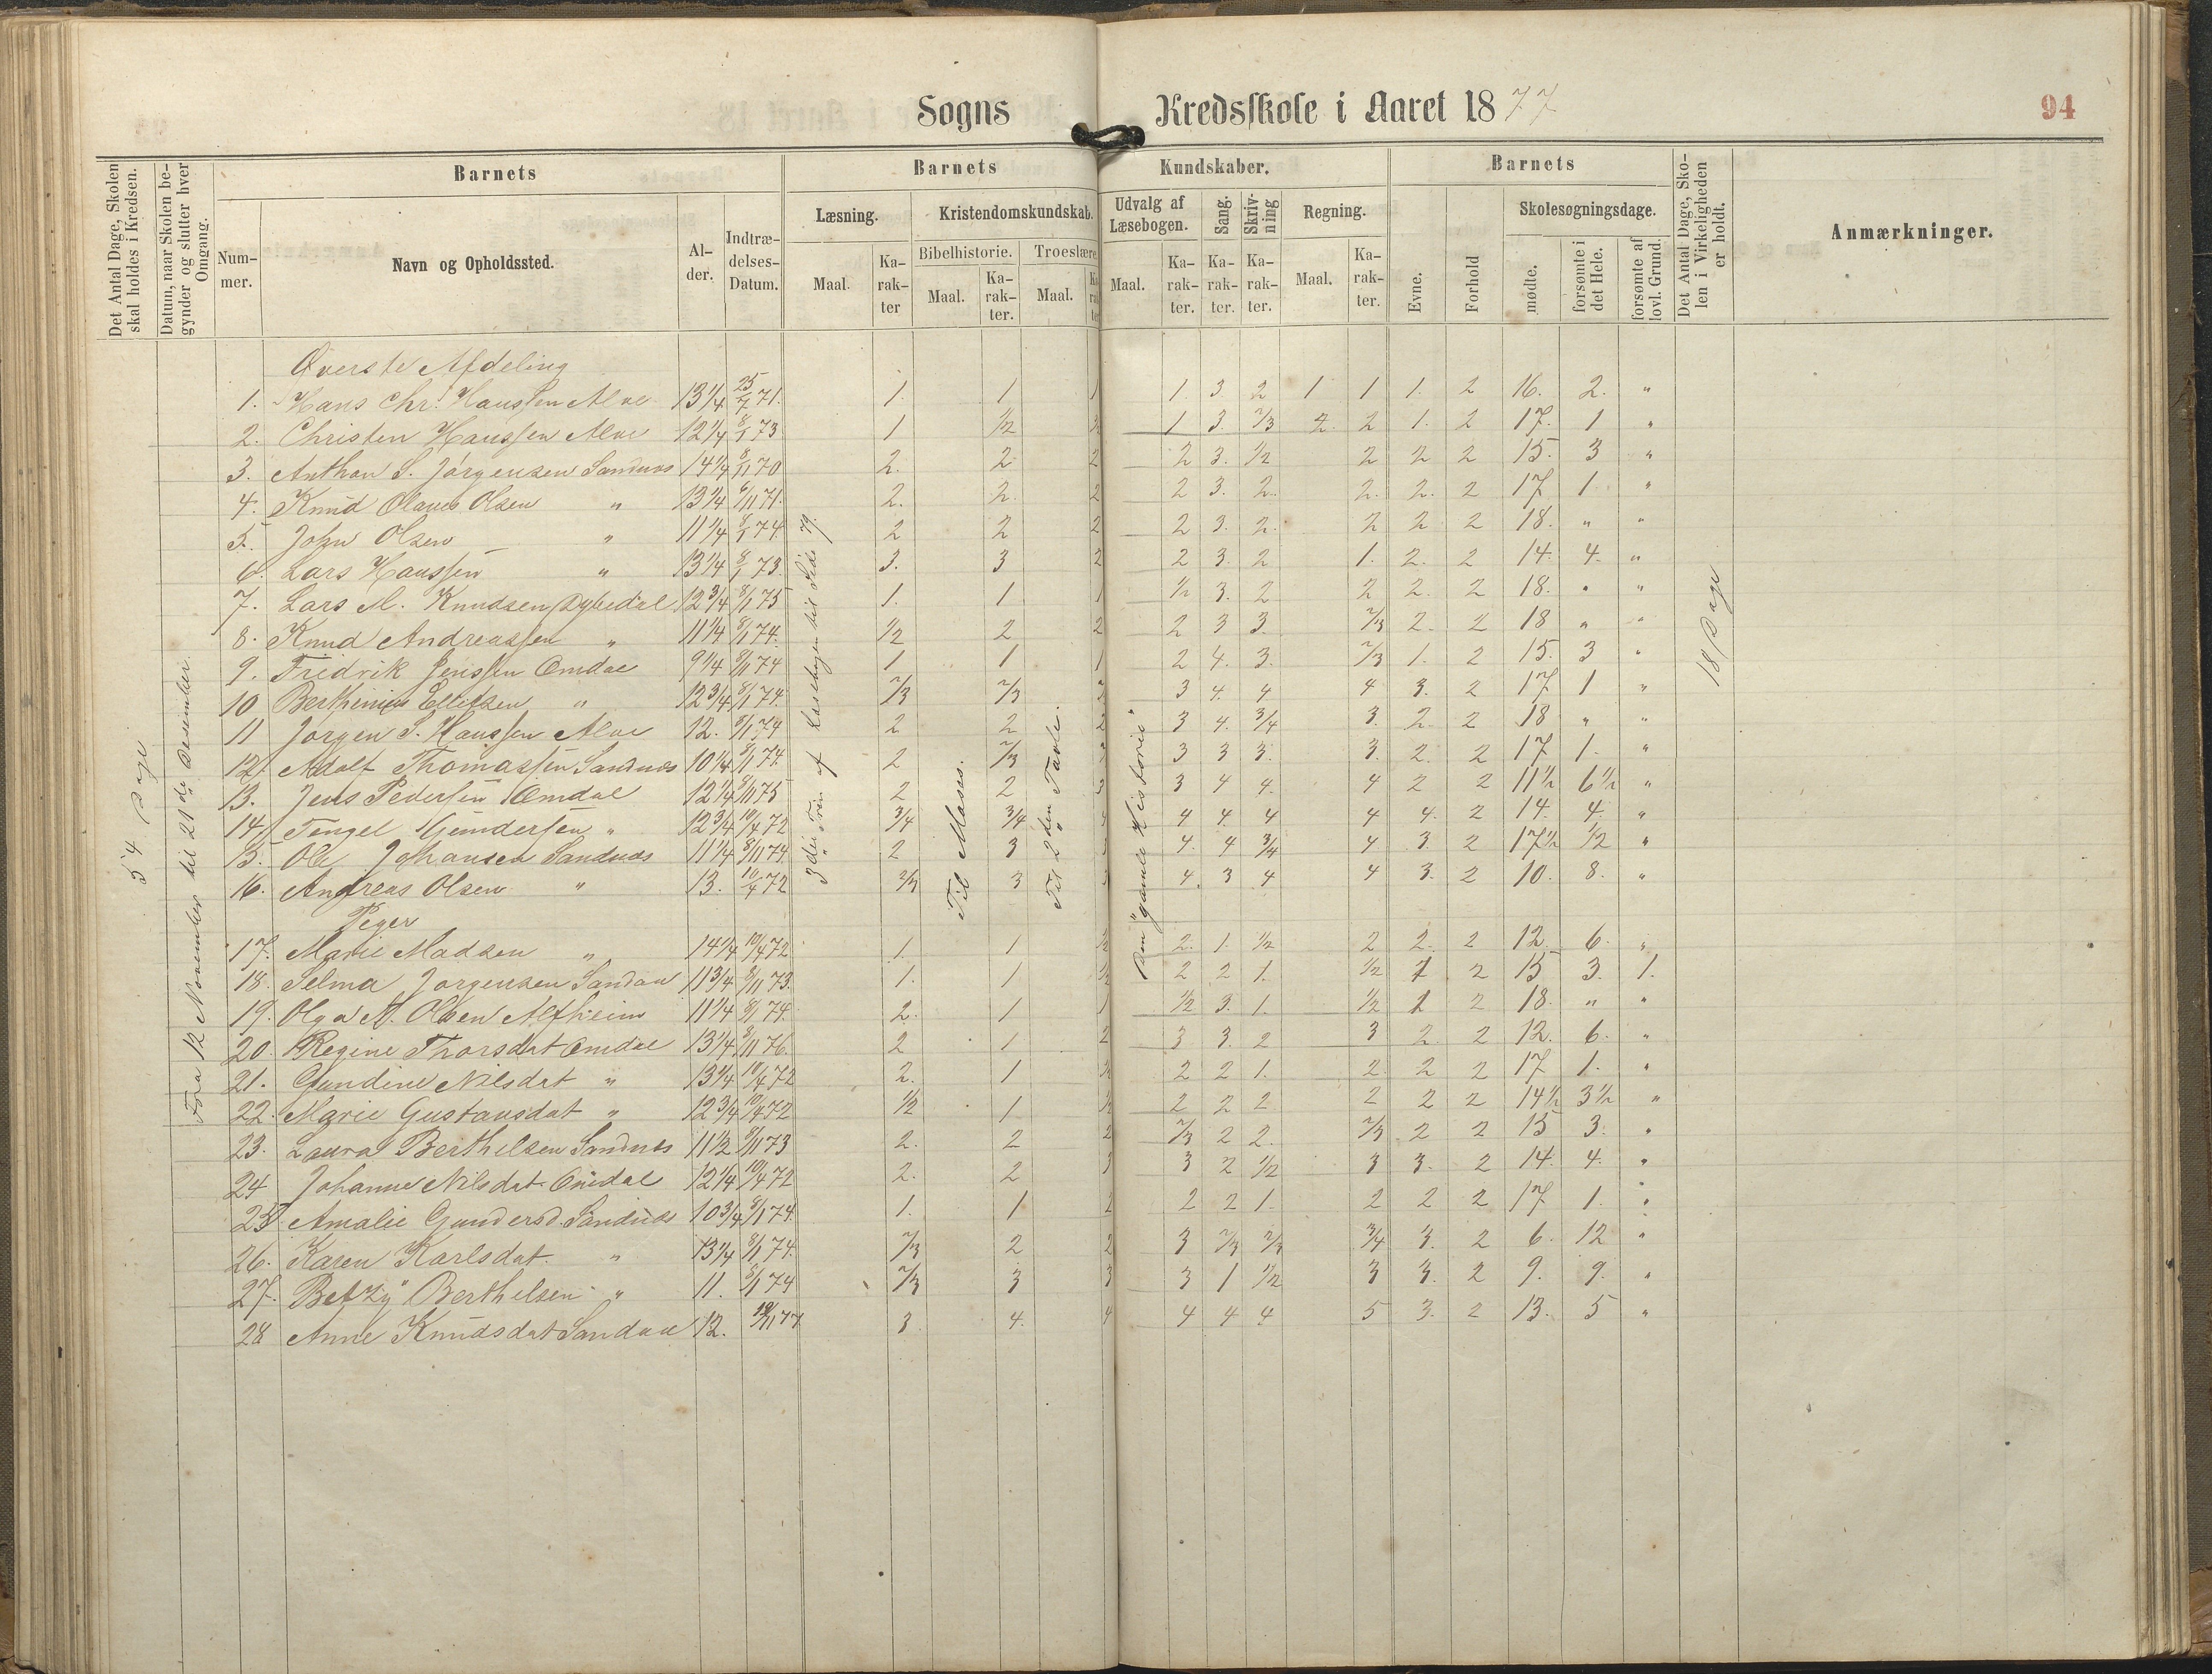 Sogns Kredsskole i Aaret 1877
94
Det Antal Dage, Skolen skal holdes i Kredsen.
Datum, naar Skolen begynder og slutter hver Omgang.
Barnets
Nummer.
Navn og Opholdssted.
Alder.
Indtrædelses-Datum.
Barnets Kundskaber.
Læsning.
Maal.
Karakter
Kristendomskundskab.
Bibelhistorie.
Maal.
Karakter.
Troeslære
Maal.
Karakter
Udvalg af Læsebogen.
Maal.
Karakter.
Sang.
Karakter.
Skrivning
Karakter.
Regning.
Maal.
Karakter.
Barnets
Evne.
Forhold
Skolesøgningsdage.
mødte.
forsømte i det Hele.
forsømte af lovl. Grund.
Det Antal Dage, Skolen i Virkeligheden er holdt.
Anmærkninger.
54 Dage
Fra 12 November til 21de Desember.
3die Trin af Læsebogen til Side 79.
Til Moses.
Til 2den Tavle.
Den "gamle Historie"
18 Dage
Øverste Afdeling
1. Hans Chr. Hanssen Alve 13 1/4 25/7 71. 1. 1 1 1. 3. 2 1 1 1. 2 16. 2. "
2. Christen Hanssen Alve 12 1/4 8/1 73. 1 1/2 1/2 1 3. 2/3 2. 2 1. 2 17. 1 "
3. Anthon S. Jørgensen Sandnes 14 1/4 8/11 70 2. 2 2 2 3. 1/2 2 2 2 15. 3 "
4. Knud Olaves Olsen " 13 1/4 6/11 71. 2. 2. 2 2 3. 2. 2. 2. 2 17 1. "
5. John Olsen " 11 1/4 8/1 74. 2 2 2 2 3. 2. 2 2 2 18. " "
6. Lars Hanssen " 13 1/4 8/1 73. 3. 3 2 2 3. 2 1. 2. 2 14. 4. "
7. Lars M. Knudsen Dybedal 12 3/4 8/1 75 1. 1 1 1/2 3. 2 2 2. 2 18. " "
8. Knud Andreassen " 11 1/4 8/1 74. 1/2 2 2 2 3 3. 2/3 2. 2 18 " "
9. Fridrik Jenssen Omdal 9 1/4 8/11 74 1 1 1 2 4. 3. 2/3 1. 2 15. 3 "
10 Berthinius Ellefsen " 12 3/4 8/1 74. 2/3 2/3 3 4. 4 4 3. 2 17 1 "
11 Jørgen S. Hanssen Alve 12. 8/1 74 2 2 2 3 4. 3/4 3. 2 2 18 " "
12. Adolf Thomassen Sandnes 10 1/4 8/1 74. 2 2/3 3 3 3 3. 3. 2. 2 17 1. "
13. Jens Pedersen Omdal 12 1/4 8/11 75 2 2 3 3 4 4. 4 2 2 11 1/2 6 1/2 "
14. Tengel Gundersen " 12 3/4 10/4 72 3/4 3/4 4 4 4. 4 4 4. 2 14. 4. "
15. Ole Johansen Sandnes 11 1/4 8/11 74. 2 3 4. 4 3/4 4 3. 2 17 1/2 1/2 "
16. Andreas Olsen " 13. 10/4 72 2/3 3 4. 3 4 4 3. 2 10. 8. "
Piger
17. Marie Madsen " 14 1/4 10/4 72 1. 1 1/2 2. 1. 1/2 2 2. 2 12. 6. "
18. Selma Jørgensen Sandaa 11 3/4 8/11 73. 1. 1 1/2 2 2 1. 1/2 1 2 15 3. 1.
19. Olga N. Olsen Alfheim 11 1/4 8/1 74. 2. 1 1 1/2 3. 1. 1/2 1 2 18. " "
20. Regine Thorsdat Omdal 13 1/4 8/11 76. 2 1 2 3 3. 2 3 2. 2 12. 6. "
21. Gundine Nilsdat " 13 1/4 10/4 72 2. 1 1/2 2 2 1. 2. 2 2 17 1. "
22. Marie Gustavsdat " 12 3/4 10/4 72 1/2 1 1/2 2 2 2 2 2 2 14 1/2 3 1/2 "
23. Laura Berthelsen Sandnes 11 1/2 8/11 73 2. 2 2 2/3 2 2. 2/3 2 2 15 3. "
24 Johanne Nilsdat Omdal 12 1/4 10/4 72 2. 2 3 3 2 1/2 3 3. 2 14. 4. "
25 Amalie Gundersd. Sandnes 10 3/4 8/1 74. 1. 1 2 2 2 1. 2 2 2 17 1. "
26. Karen Karlsdat. " 13 1/4 8/1 74. 2/3 2 2 3 2/3 2/3 3/4 3. 2 6. 12 "
27. Betzy Berthelsen " 11. 8/1 74 2/3 3 3 3 1 1/2 3 3. 2 9. 9. "
28 Anne Knudsdat Sandaa 12. 12/11 77 3 4. 4 4 4 4 5 3. 2 13. 5 "